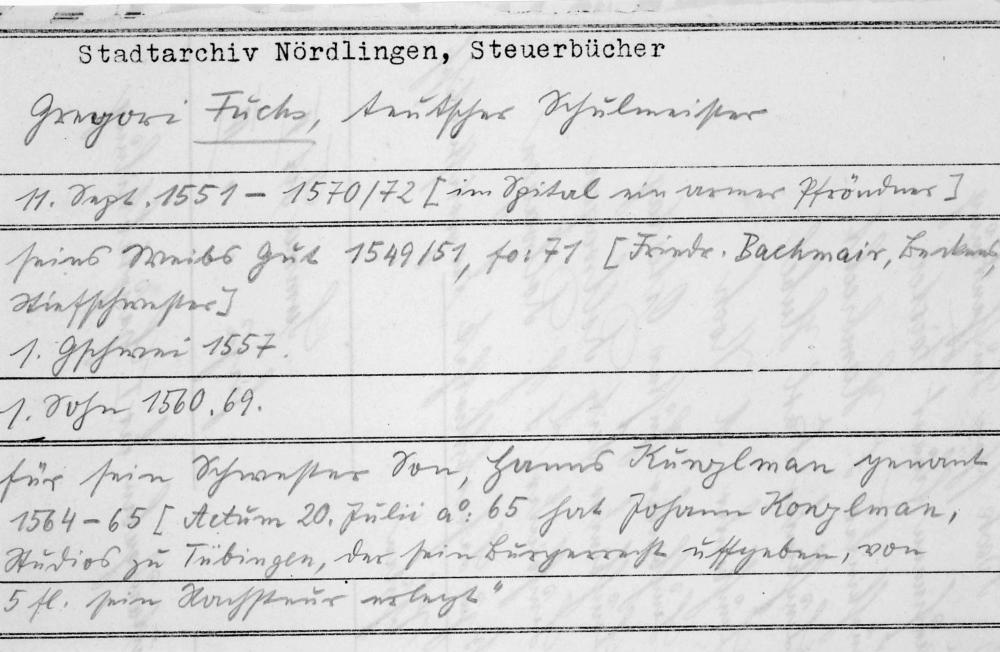 Stadtarchiv Nördlingen, Steuerbücher
Gregori Fuchs, teutscher Schulmeister
11. Sept. 1551 - 1570/72 [im Spital ein armer Pfröndner]
seins Weibs Gut 1549/51, fo: 71 [Friedr. Bachmair, Beckens,
Stiefschwester]
1. Gschwei 1557.
1. Sohn 1560. 69.
für sein Schwester Son, Hanns Kunzlman genant
1564-65 [Actum 20. Julii aº: 65 hat Johann Konzlman,
Studios zu Tübingen, der sein Burgerrecht uffgeben, von
5 fl. sein Nachsteur erlegt"